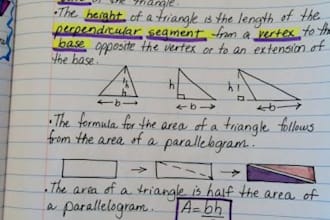 of the triangle.
•The height of a triangle is the length of the
perpendicular segment from a vertex to the
base opposite the vertex or to an extension of
the base.
h h h
b b b
•The formula for the area of a triangle follows
from the area of a parallelogram.
•The area of a triangle is half the area of
a parallelogram. A=bh